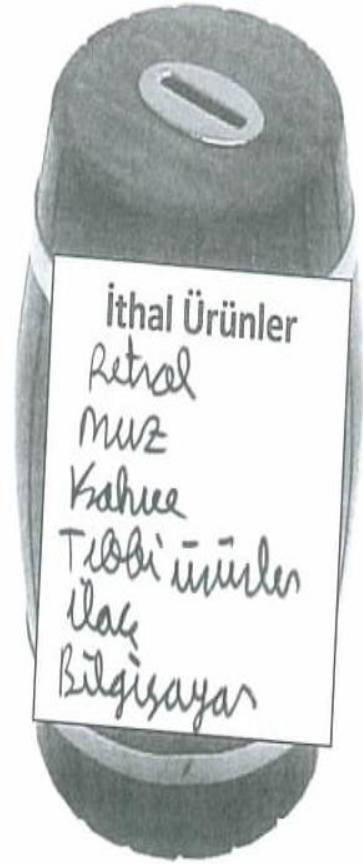 İthal Ürünler
Petrol
muz
Kahve
Tıbbi ürünler
ilaç
Bilgisayar